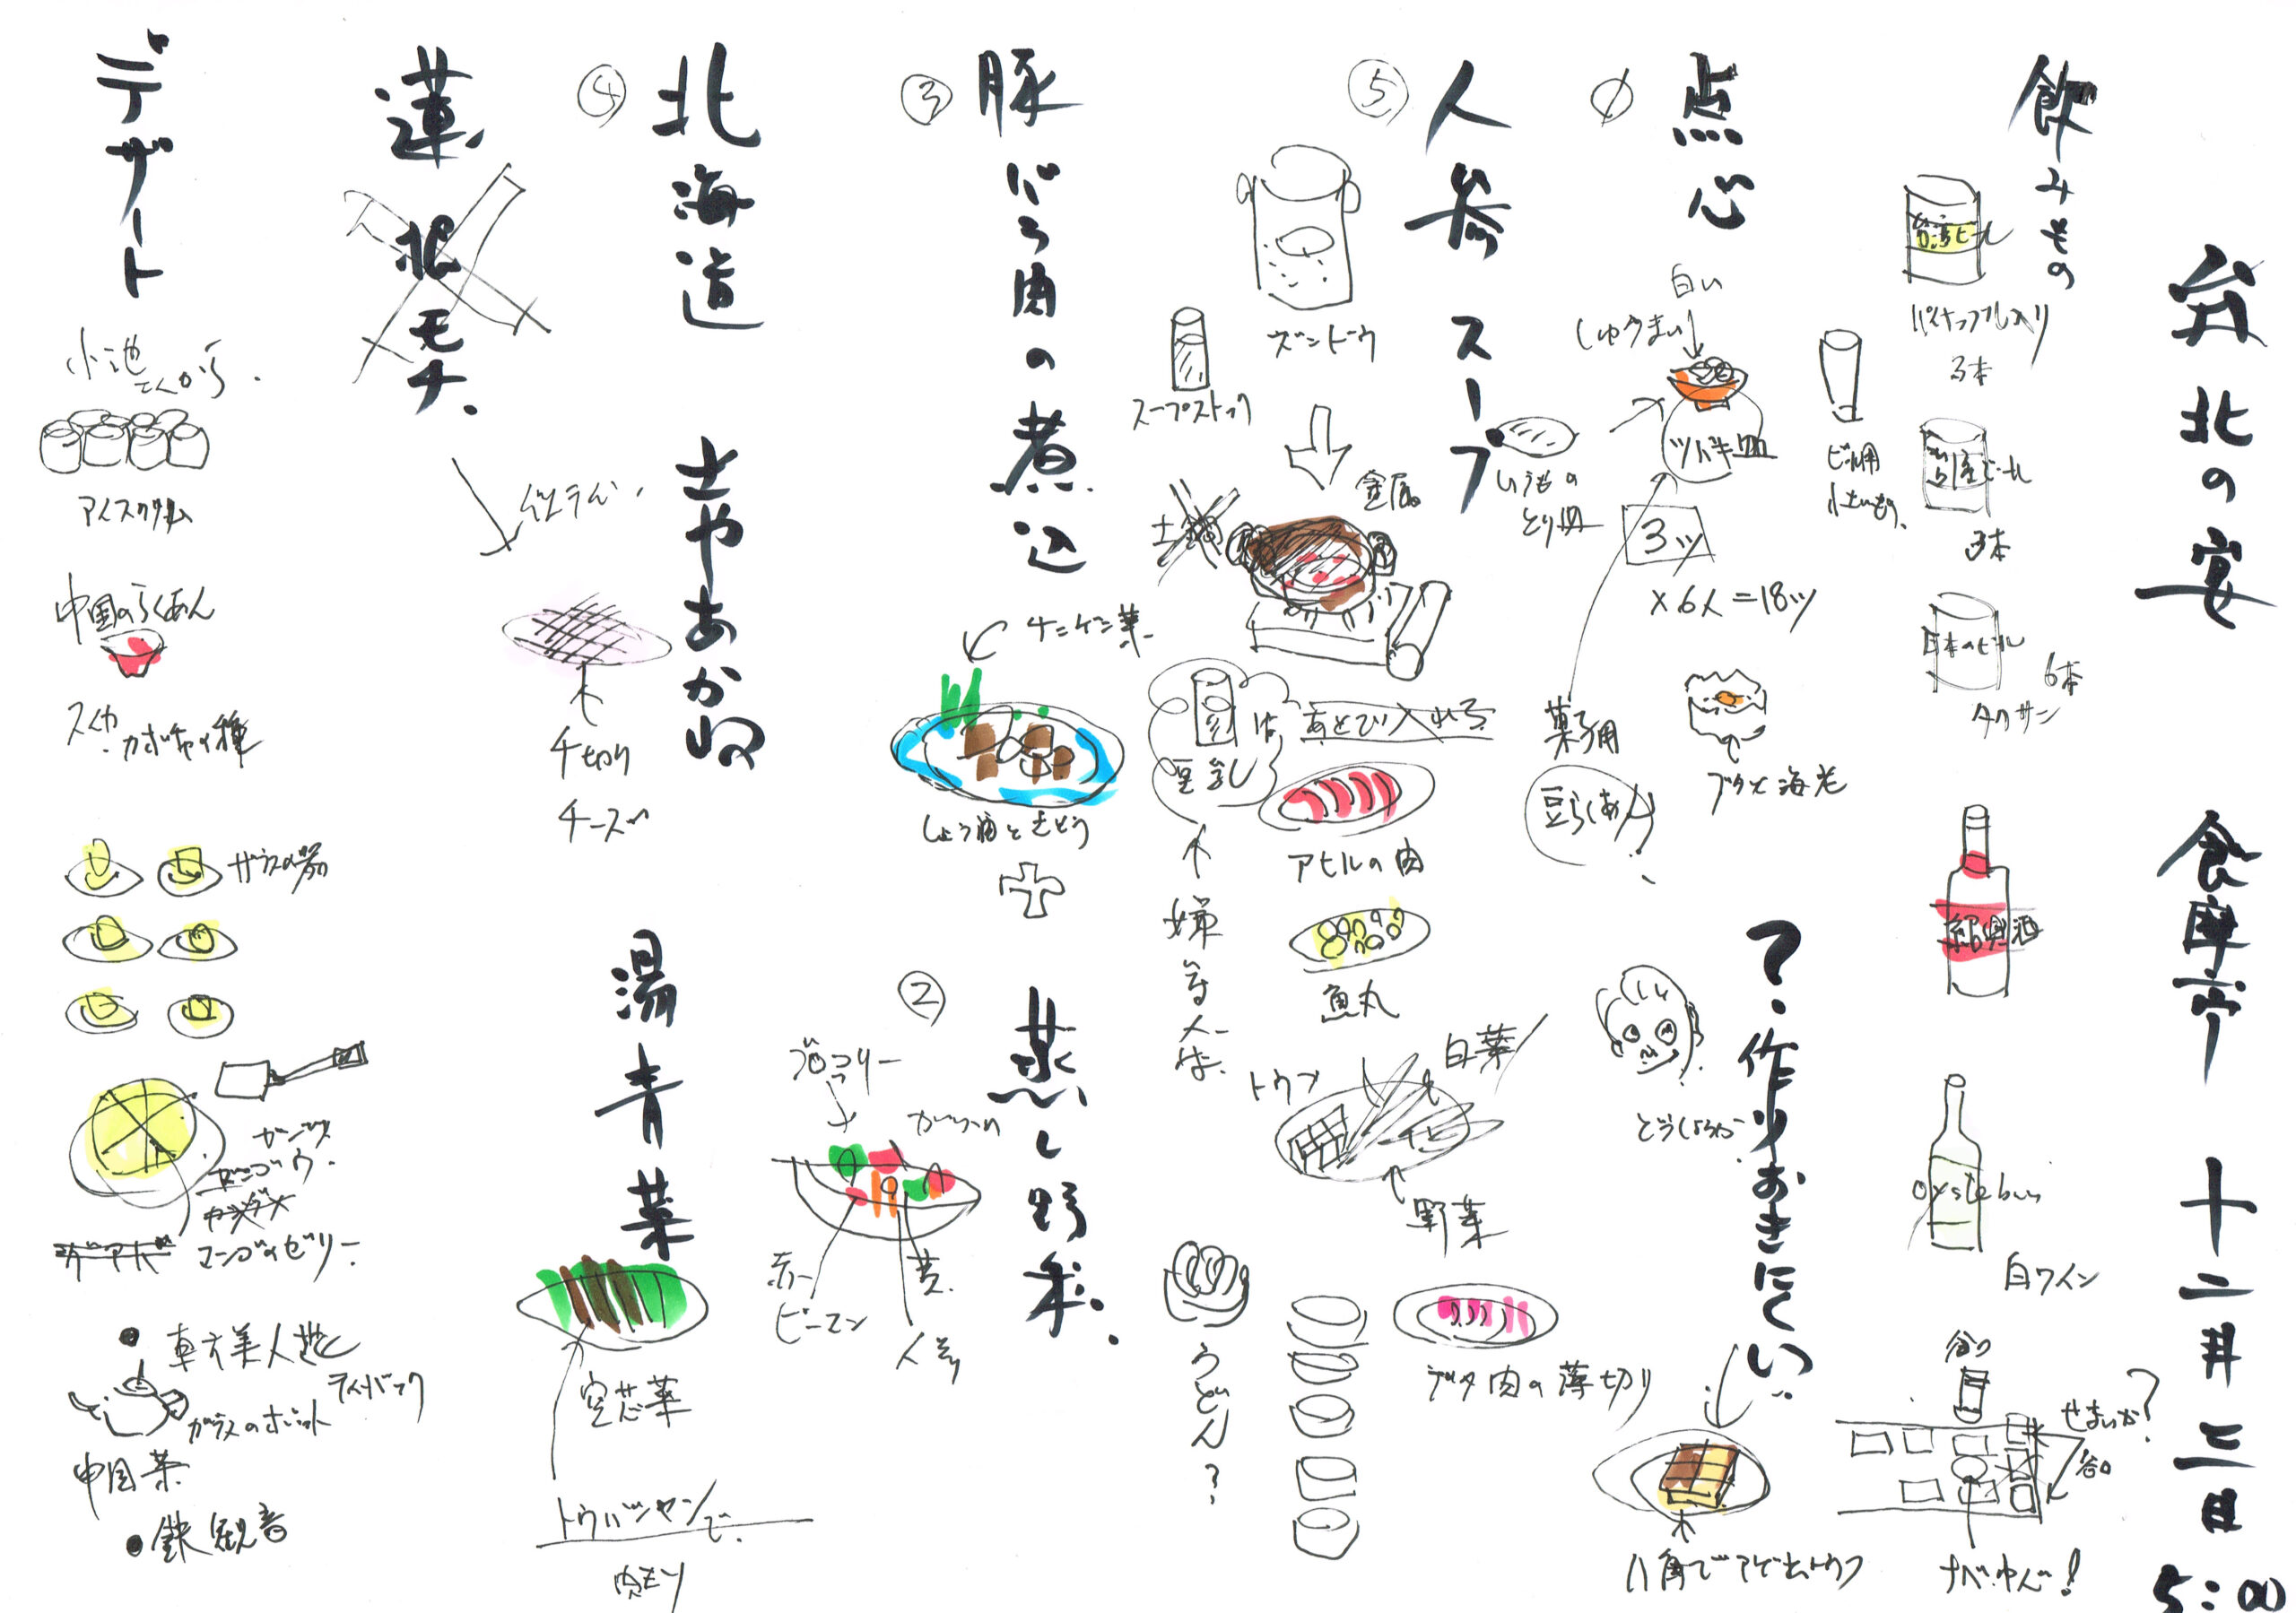 弁北の宴
食摩亭
十二月二三日
5:00
飲みもの
台湾ビール
パイナップル入り
3本
台湾ビール
3本
日本のビール
6本
タクサン
紹興酒
白ワイン
谷口
せまいか?
谷口
ビール用
小さいもの
点心
白い
しゅうまい
ツバキ皿
3ッ
×6人=18ッ
菓子用
豆らくあん
ブタと海老
?作りおきにくい
どうしようか
八角でアゲたトウフ
⑤
人参スープ
ズンドウ
スープストック
いうもの
とり皿
金属
土鍋
豆乳
は
あとで入れる
アヒルの肉
魚丸
トウフ
白菜
野菜
ブタ肉の薄切り
うどん?
③
豚バラ肉の煮込
チンゲン菜
しょう油とさとう
②
蒸し野菜
ブロッコリー
赤ピーマン
人参
④
北海道
さやあかね
千切り
チーズ
湯青菜
空芯菜
トウバンジャンで
肉もり
蓮根モチ
デザート
小池さんから
アイスクリーム
中国のらくあん
スイカ
カボチャの種
ガラスの器
マンゴのゼリー
東方美人茶
ティーバック
ガラスのポット
中国茶
鉄観音